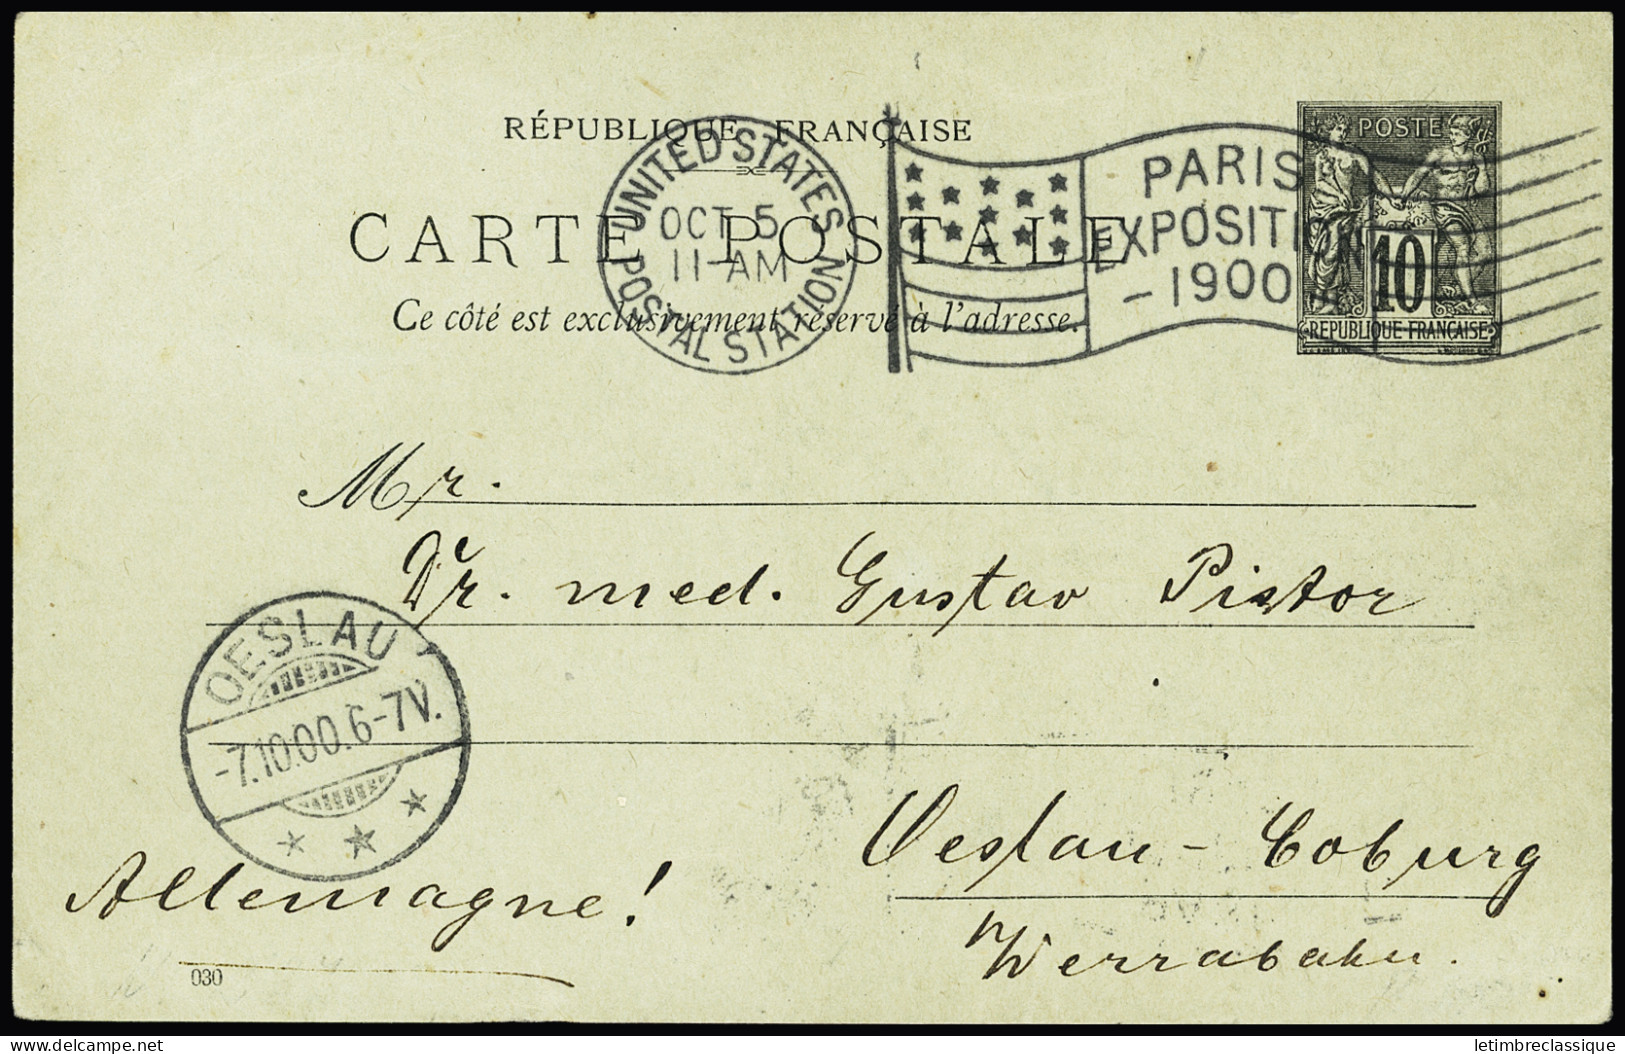 RÉPUBLIQUE FRANÇAISE
CARTE POSTALE
Ce côté est exclusivement réservé à l'adresse.
UNITED STATES
OCT 5
11-AM
POSTAL STATION
PARIS
EXPOSITION
-1900
POSTE
10
REPUBLIQUE FRANÇAISE
Mr.
Dr. med. Gustav Pistor
OESLAU
-7.10.00.6-7V.
Oeslau - Coburg
Allemagne!
Werrabahn.
030
delcampe.net
letimbreclassique